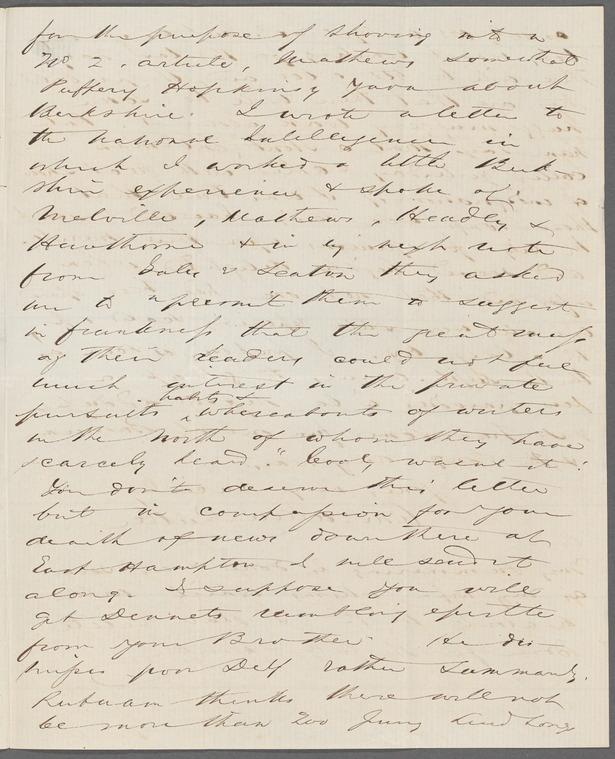 for the purpose of shoving into a
No 2. article, Mathews somewhat
Puffery Hopkinsy yarn about
Berkshire. I wrote a letter to
the National Intelligencer in
which I worked a little Berk-
shire experience & spoke of
Melville, Mathews, Headley &
Hawthorne & in my next note
from Gales & Seaton they asked
me to "permit them to suggest
in frankness that the great mass
of their readers could not feel
much interest in the private
pursuits habits & whereabouts of writers
in the North of whom they have
scarcely heard." Cool, wasnt it!
You don't deserve this letter
but in compassion for your
dearth of news down there at
East Hampton I will send it
along. I suppose you will
get Dennets rumbling epistle
from your Brother. He dis
misses poor Delf rather summarily.
Putnam thinks there will not
be more than 200 Jenny Lind Songs